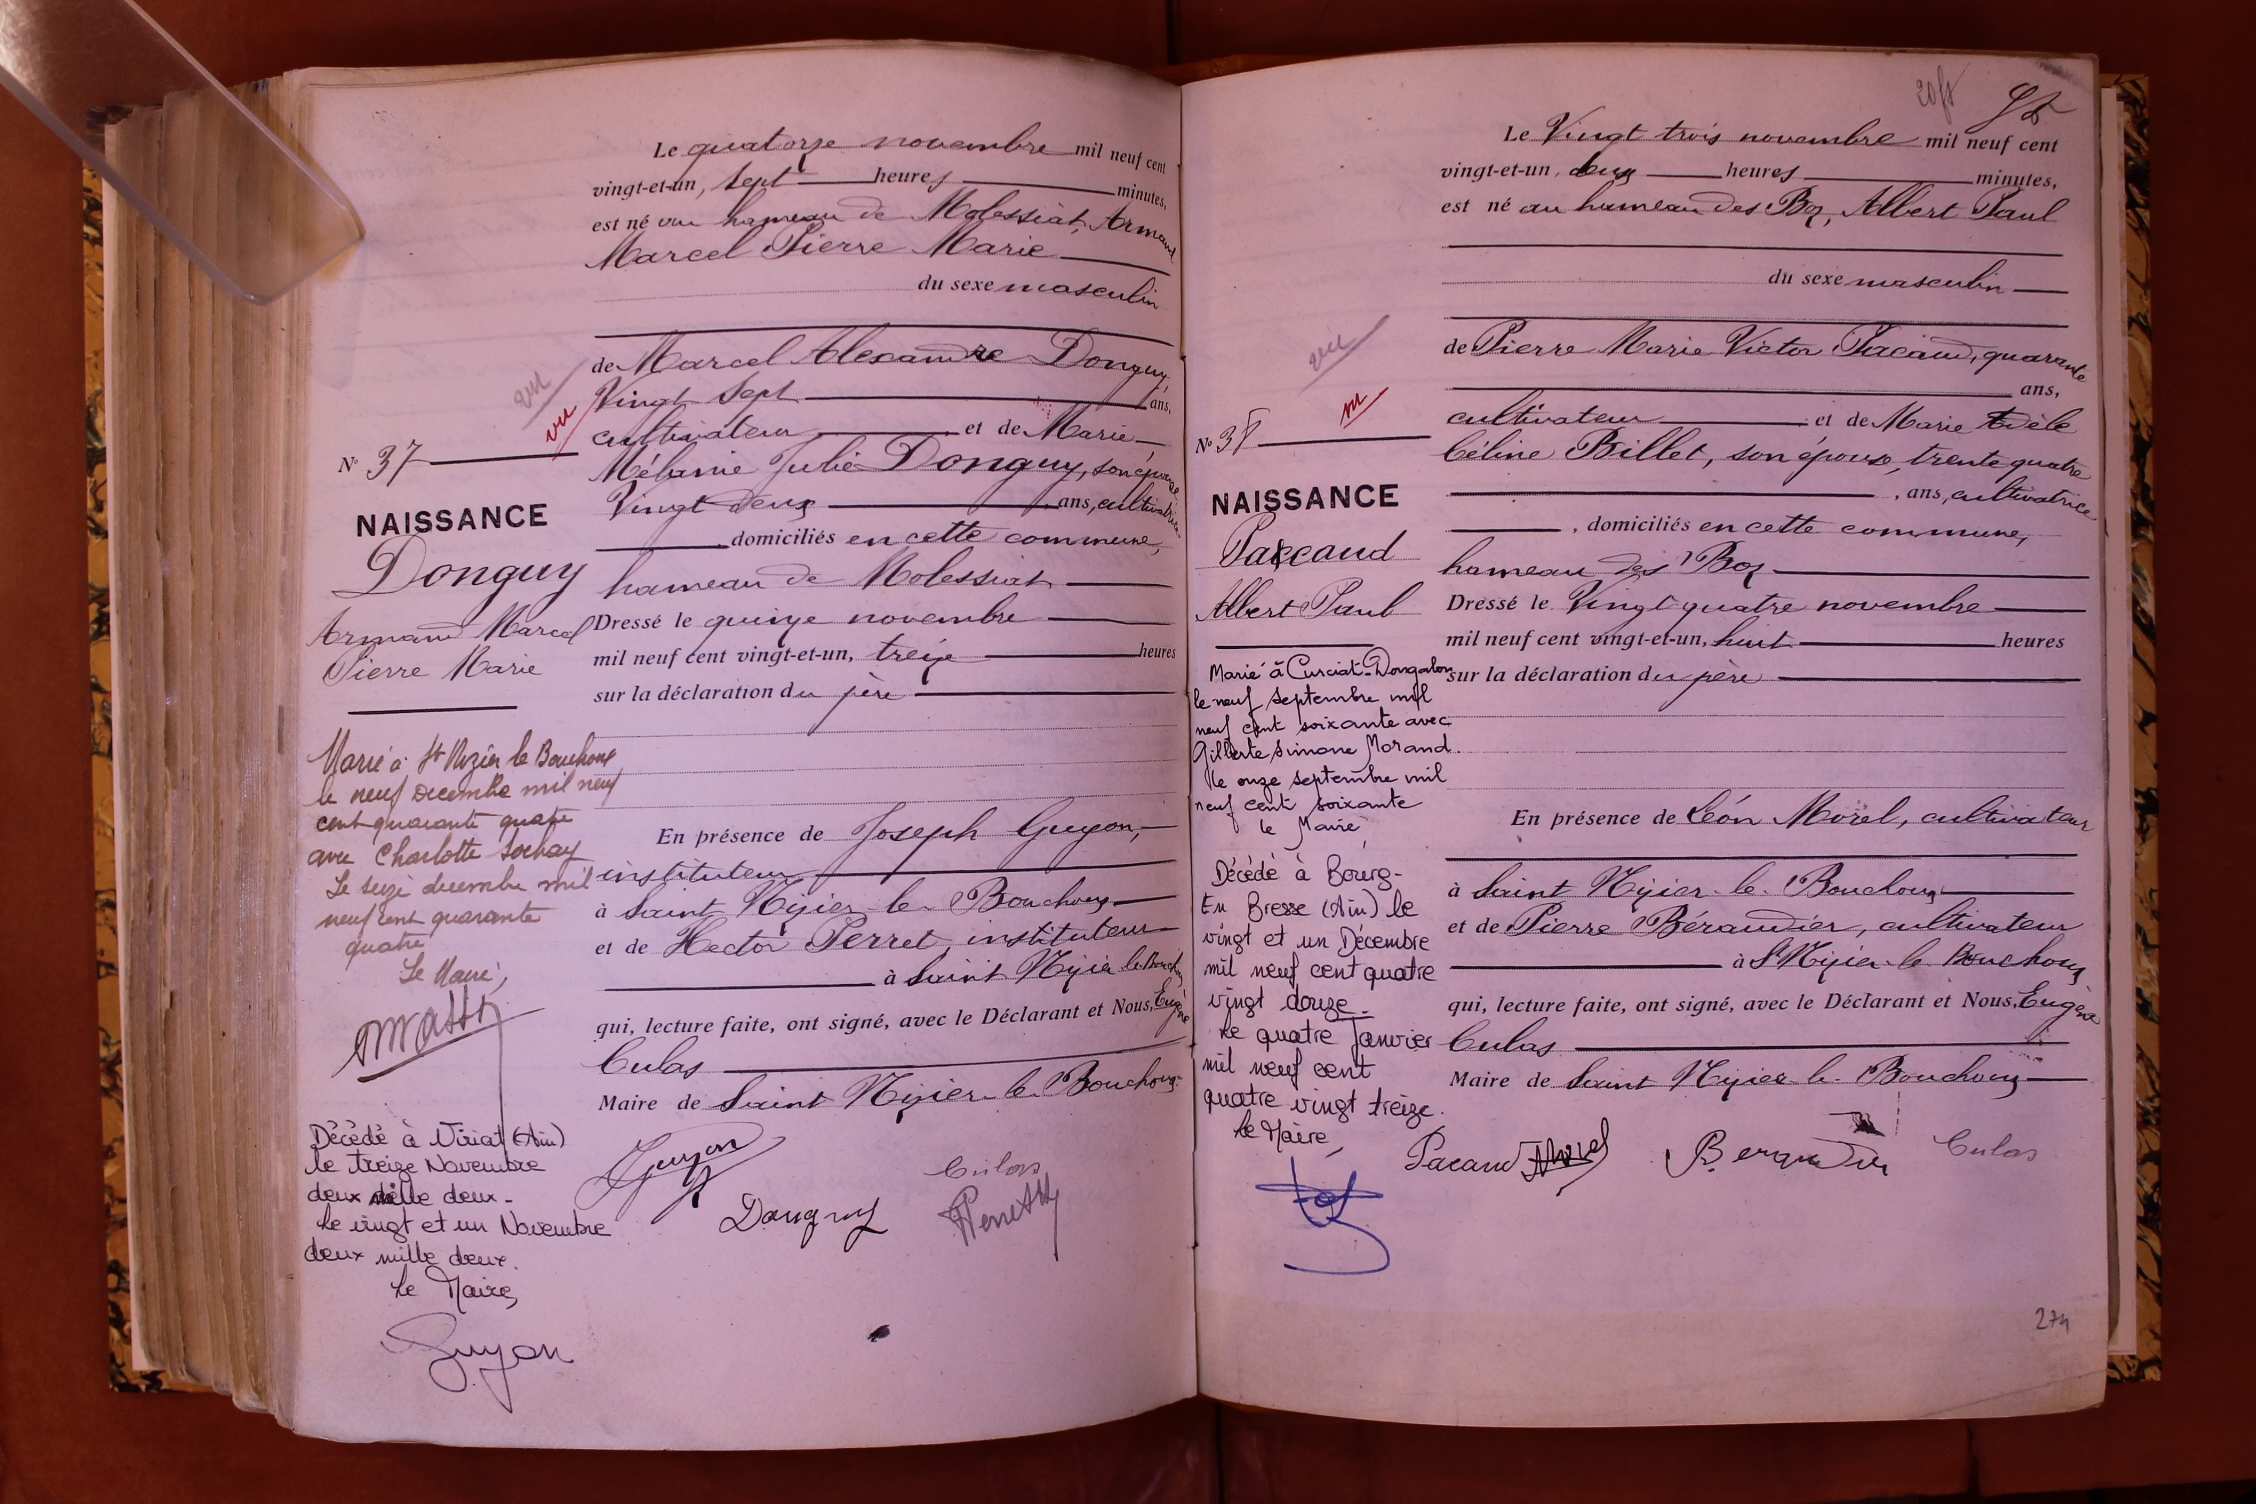 Le quatorze novembre mil neuf cent
vingt-et-un, sept heures minutes,
est né au hameau de Molessiat, Armand
Marcel Pierre Marie
du sexe masculin
de Marcel Alexandre Donguy,
Vingt sept ans,
cultivateur et de Marie
Mélanie Julie Donguy, son épouse
Vingt deux ans, cultivatrice
domiciliés en cette commune,
hameau de Molessiat
Dressé le quinze novembre
mil neuf cent vingt-et-un, treize heures
sur la déclaration du père
En présence de Joseph Guyon,
instituteur
à Saint Nizier-le-Bouchoux
et de Hector Perret, instituteur
à Saint Nizier le Bouchoux
qui, lecture faite, ont signé, avec le Déclarant et Nous, Eugène
Culas
Maire de Saint Nizier-le-Bouchoux
Guyon
Donguy
Culas
Perret
vu
vu
N° 37
NAISSANCE
Donguy
Armand Marcel
Pierre Marie
Marié à St Nizier le Bouchoux
le neuf décembre mil neuf
cent quarante quatre
avec Charlotte
Le seize décembre mil
neuf cent quarante
quatre
Le Maire,
Décédé à Viriat (Ain)
le treize Novembre
deux mille deux -
le vingt et un Novembre
deux mille deux.
Le Maire,
Guyon
Le Vingt trois novembre mil neuf cent
vingt-et-un, deux heures minutes,
est né au hameau des Boz, Albert Paul
du sexe masculin
de Pierre Marie Victor Pacaud, quarante
ans,
cultivateur et de Marie Adèle
Céline Billet, son épouse, trente quatre
, ans, cultivatrice
, domiciliés en cette commune,
hameau des Boz
Dressé le Vingt quatre novembre
mil neuf cent vingt-et-un, huit heures
sur la déclaration du père
En présence de Léon Morel, cultivateur
à Saint Nizier-le-Bouchoux
et de Pierre Béraudier, cultivateur
à St Nizier-le Bouchoux
qui, lecture faite, ont signé, avec le Déclarant et Nous, Eugène
Culas
Maire de Saint Nizier le Bouchoux
Pacaud Morel Beraudier Culas
vu
vu
N° 38
NAISSANCE
Paccaud
Albert Paul
Marié à Curciat-Dongalon
le neuf septembre mil
neuf cent soixante avec
Gilberte Simone Morand.
le onze septembre mil
neuf cent soixante
le Maire
Décédé à Bourg-
En Bresse (Ain) le
vingt et un Décembre
mil neuf cent quatre
vingt douze -
le quatre Janvier
mil neuf cent
quatre vingt treize.
Le Maire,
274